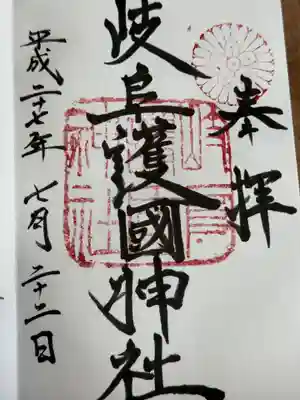 奉拝
岐阜護國神社
平成二十七年 七月 二十二日